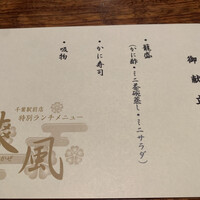 御献立
・籠盛
(かに酢・ミニ茶碗蒸し・ミニサラダ)
・かに寿司
・吸物
千葉駅前店
特別ランチメニュー
風
かぜ